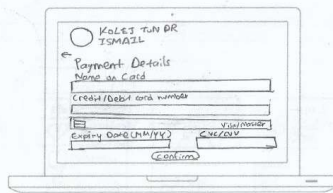 KOLEJ TUN DR
ISMAIL
Payment Details
Name on Card
Credit/Debit card number
Visa/Master
Expiry Date (MM/YY)
CVC/CVV
Confirm